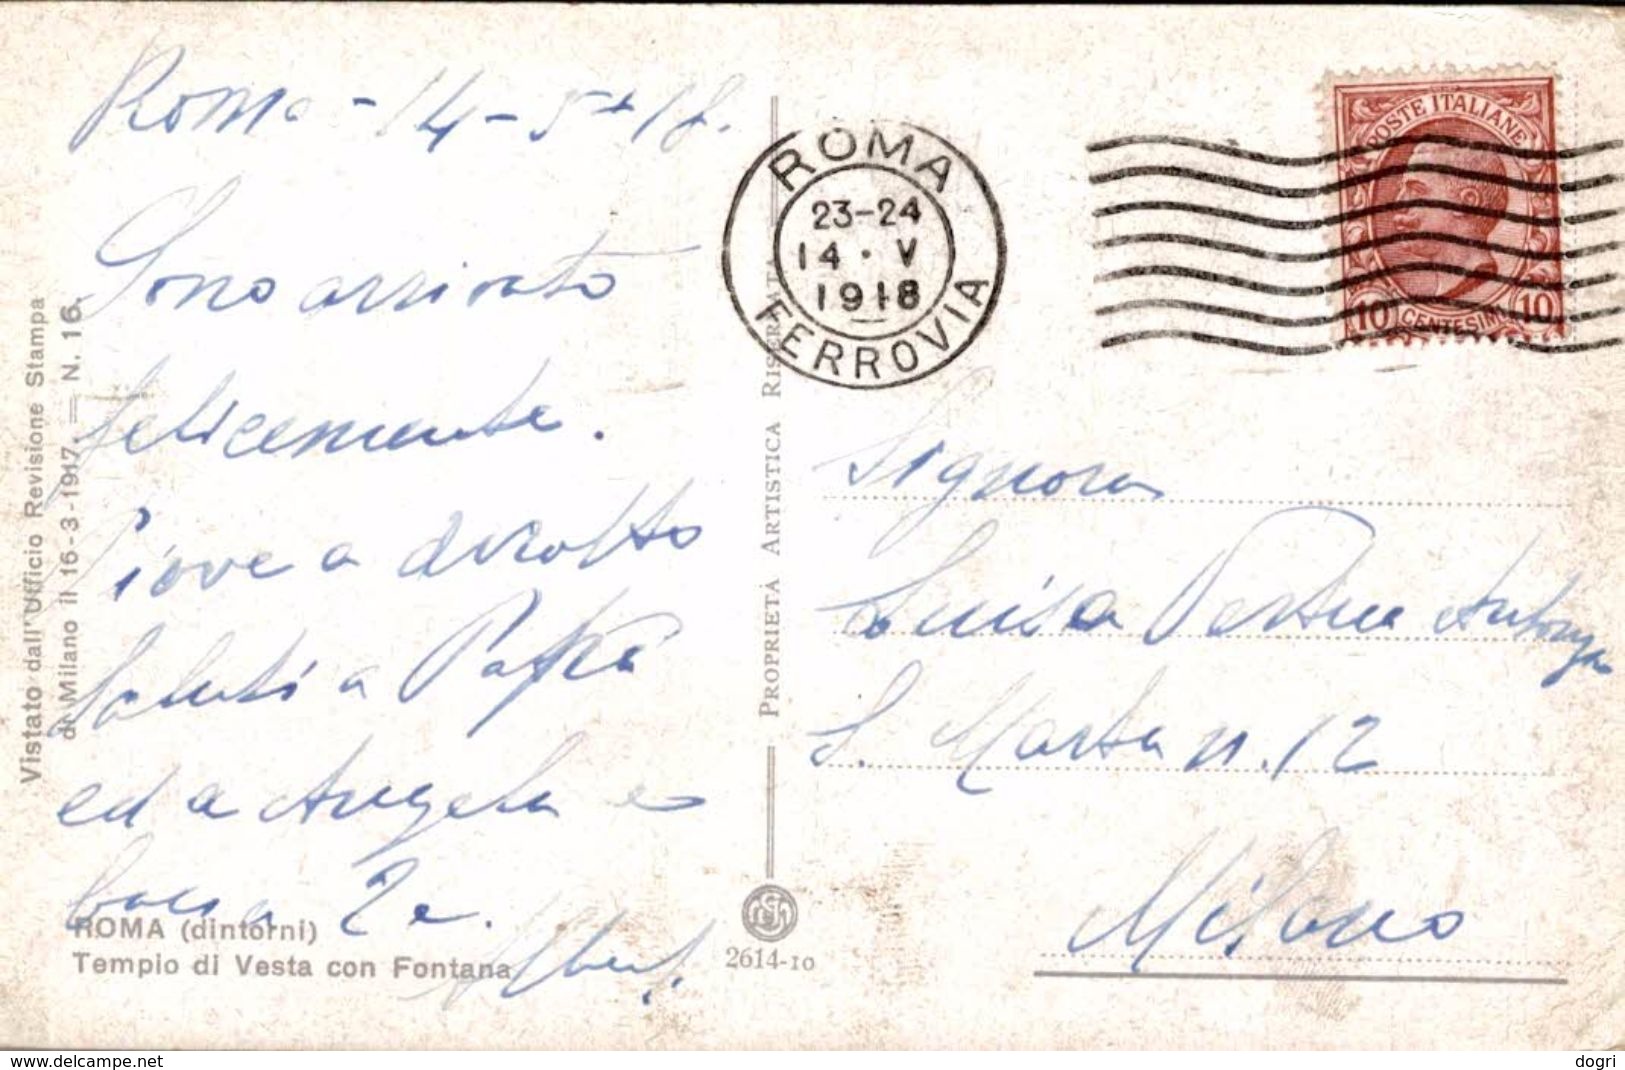 Roma - 14 - 5 - 18.
Sono arrivato
felicemente.
Piove a dirotto
Saluti a Papà
ed a Angela e
Vistato dall'Ufficio Revisione Stampa
di Milano il 16-3-1917 — N. 16.
ROMA (dintorni)
Tempio di Vesta con Fontana
PROPRIETÀ ARTISTICA RISERVATA
2614-10
ROMA
23-24
14 · V
1918
FERROVIA
POSTE ITALIANE
10 CENTESIMI 10
Signora
Luisa
S. Marta n. 12
Milano
delcampe.net
dogri